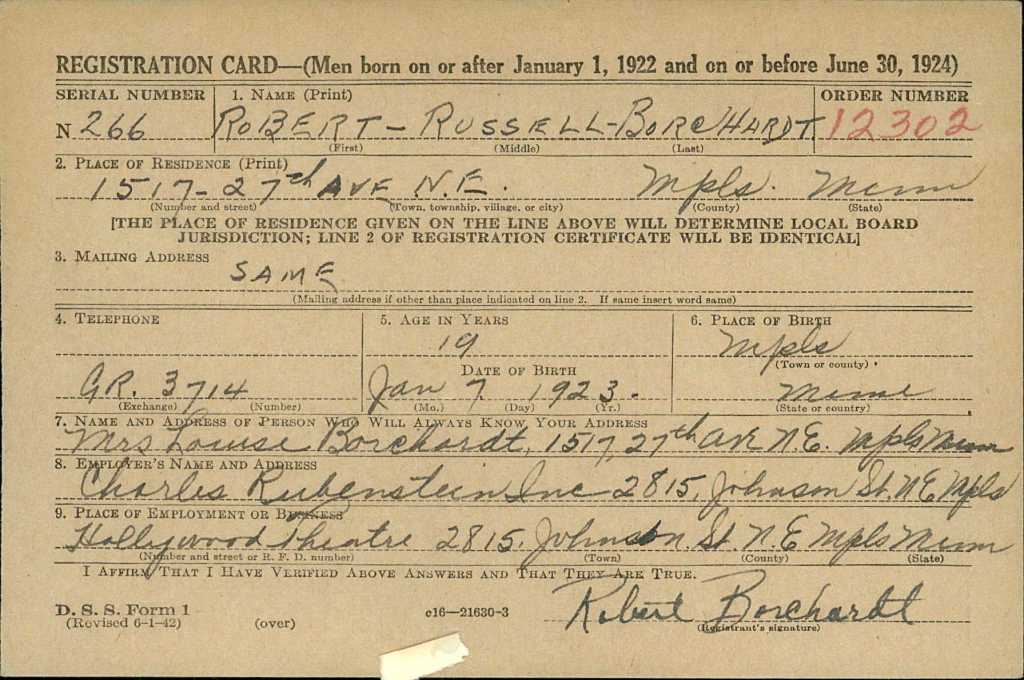 REGISTRATION CARD—(Men born on or after January 1, 1922 and on or before June 30, 1924)
SERIAL NUMBER 1. NAME (Print) ORDER NUMBER
N 266 ROBERT - RUSSELL - BORCHARDT 12302
(First) (Middle) (Last)
2. PLACE OF RESIDENCE (Print)
1517 - 27th AVE N.E. Mpls. Minn
(Number and street) (Town, township, village, or city) (County) (State)
[THE PLACE OF RESIDENCE GIVEN ON THE LINE ABOVE WILL DETERMINE LOCAL BOARD
JURISDICTION; LINE 2 OF REGISTRATION CERTIFICATE WILL BE IDENTICAL]
3. MAILING ADDRESS
SAME
(Mailing address if other than place indicated on line 2. If same insert word same)
4. TELEPHONE 5. AGE IN YEARS 6. PLACE OF BIRTH
19 Mpls
DATE OF BIRTH (Town or county)
GR. 3714 Jan 7. 1923. Minn
(Exchange) (Number) (Mo.) (Day) (Yr.) (State or country)
7. NAME AND ADDRESS OF PERSON WHO WILL ALWAYS KNOW YOUR ADDRESS
Mrs Louise Borchardt, 1517, 27th Ave N.E. Mpls Minn
8. EMPLOYER'S NAME AND ADDRESS
Charles Rubenstein Inc 2815, Johnson St. N E Mpls
9. PLACE OF EMPLOYMENT OR BUSINESS
Hollywood Theatre 2815. Johnson St. N. E Mpls Minn
(Number and street or R. F. D. number) (Town) (County) (State)
I AFFIRM THAT I HAVE VERIFIED ABOVE ANSWERS AND THAT THEY ARE TRUE.
D. S. S. Form 1 c16—21630-3 Robert Borchardt
(Revised 6-1-42) (over) (Registrant's signature)